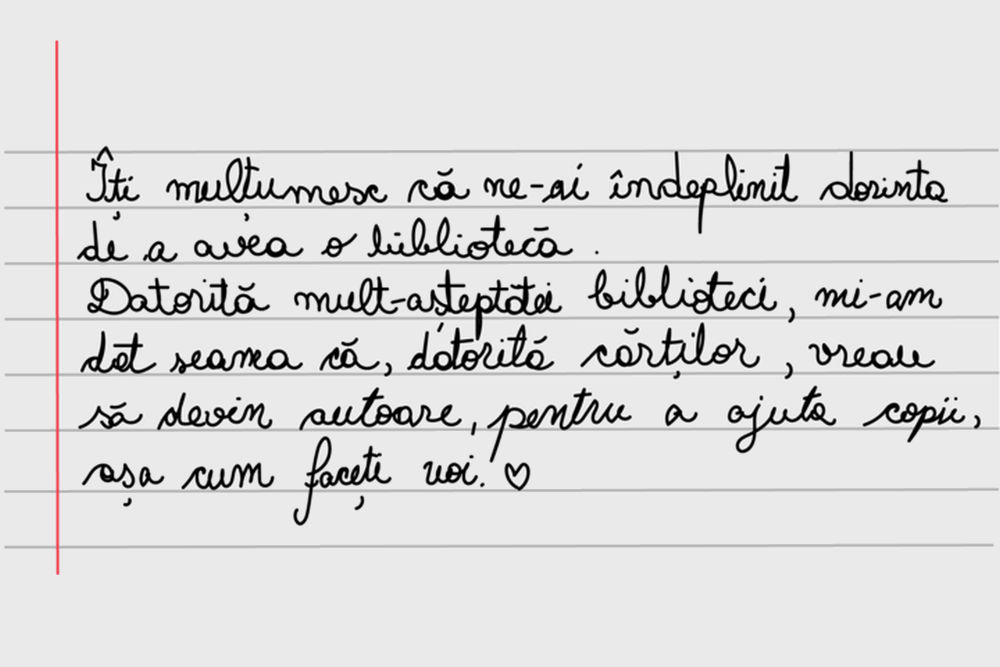 Îți mulțumesc că ne-ai îndeplinit dorinta
de a avea o bibliotecă.
Datorită mult-așteptatei biblioteci, mi-am
dat seama că, datorită cărților, vreau
să devin autoare, pentru a ajuta copii,
așa cum faceți voi. ♡